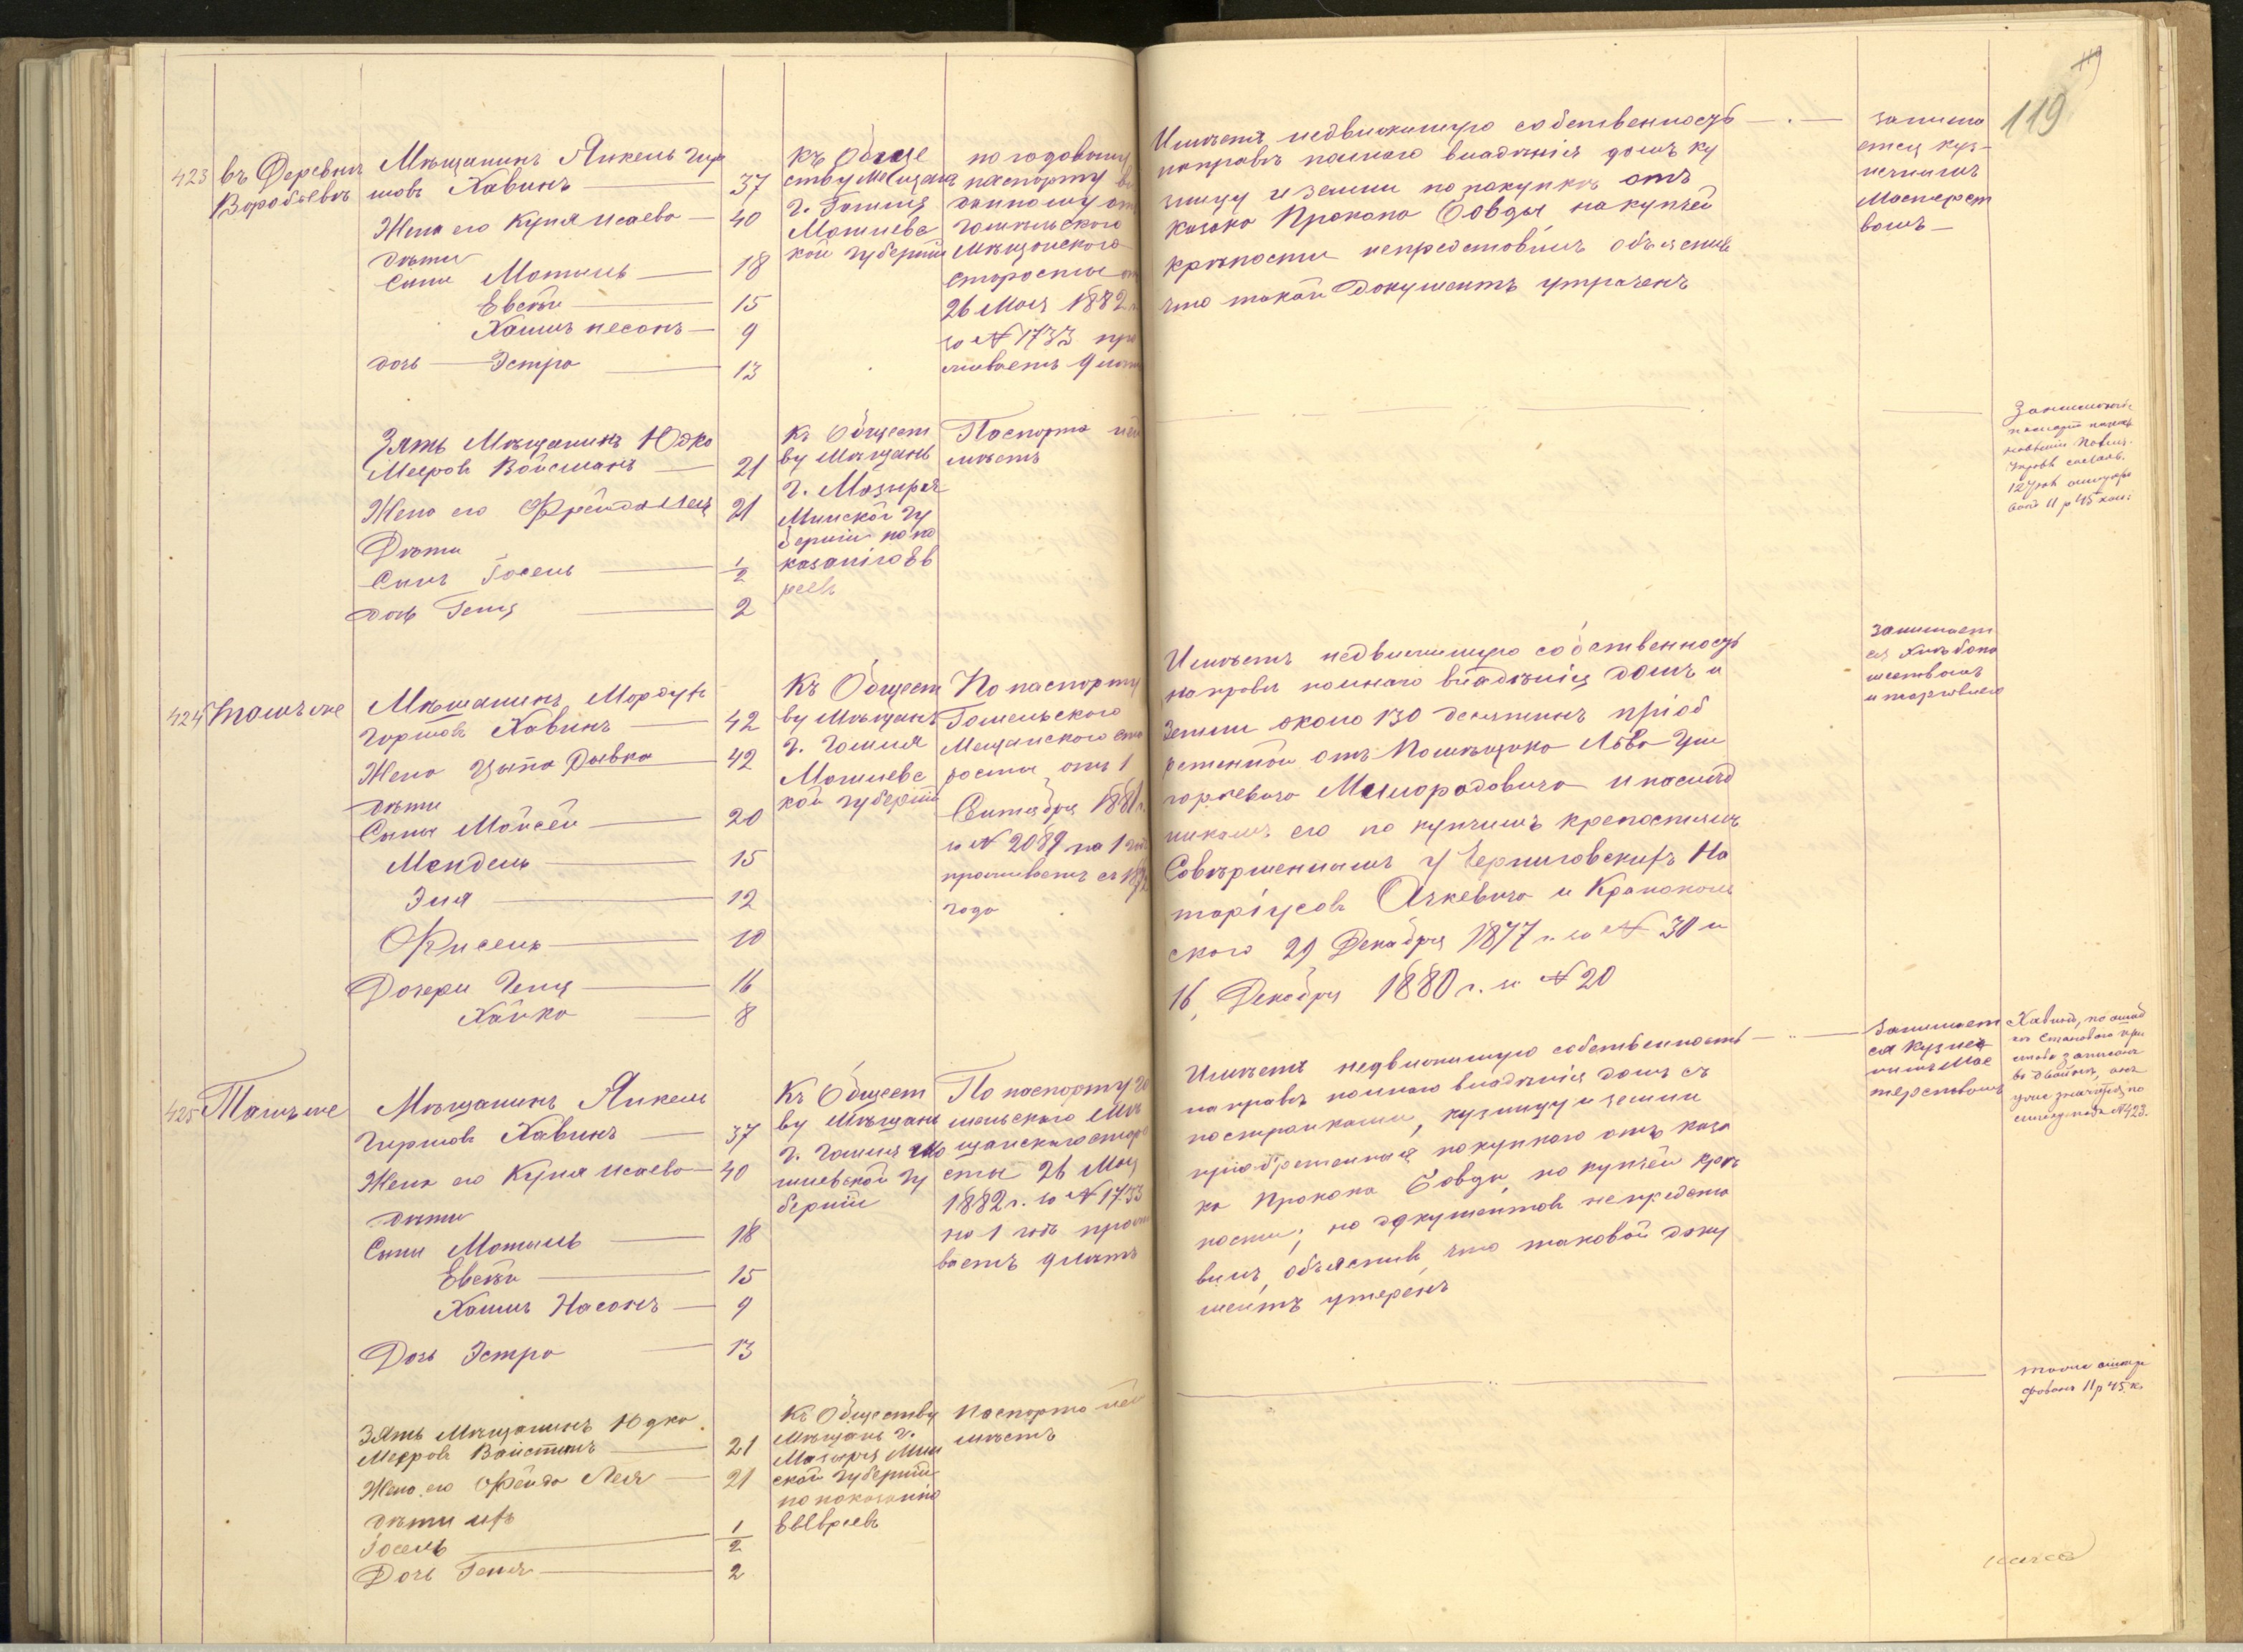 119
423
въ Деревни
Воробьевкѣ
Мѣщанинъ Янкель Гир
шовъ Хавинъ — 37
Жена его Куня Исаева — 40
дѣти
Сыны Мотель — 18
Евсѣй — 15
Хаимъ Несонъ — 9
дочь — Эстра — 13
Къ Обще
ству Мещанъ
г. Гомля
Могилевс
кой губерніи
по годовому
паспорту вы
данному отъ
Гомельского
Мѣщанского
старосты
26 Мая 1882
за № 1733 про
живаетъ 9 лѣтъ
Имѣетъ недвижимую собственность
на правѣ полнаго владѣнія домъ ку
зницу и земли по покупкѣ отъ
казака Прокопа Бовды на купчей
крѣпости непредставилъ объяснивъ
что такой документъ утраченъ
занима
ется куз-
нечнымъ
Мастерст
вомъ —
Зять Мѣщанинъ Юдка
Мееровъ Войсманъ — 21
Жена его Фрейда Лея 21
Дѣти
Сынъ Іосель — 1/2
Дочь Геня — 2
Къ Общест
ву Мѣщанъ
г. Мозыря
Минской гу
берніи по по
казанію Ев
реевъ
Паспорта неи
мѣетъ
424
Тамъ же
Мѣщанинъ Мордухъ
Гиршовъ Хавинъ — 42
Жена Цыпа Рывка — 42
дѣти
Сыны Мойсей — 20
Мендель — 15
Эля — 12
Фисель — 10
Дочери Геня — 16
Хайка — 8
Къ Общест
ву Мѣщанъ
г. Гомля
Могилевс
кой губерніи
По паспорту
Гомельского
Мещанского ста
росты отъ 1
Сентября 1881 г.
за № 2089 на 1 годъ
проживаетъ съ
года
Имѣетъ недвижимую собственность
на правѣ полнаго владѣнія домъ и
Земли около 130 десятинъ пріоб
ретенной отъ Помѣщика Льва Гри
горьевича Милорадовича и наслѣд
никамъ его по купчимъ крепостямъ
Совѣршеннымъ у Черниговскихъ На
таріусовъ Ачкевича и Крапоком
ского 29 Декабря 1877 г. за № 30 и
16 Декабря 1880 г. за № 20
Занимает
ся Хлѣбопа
шествомъ
и торговлею
425
Тамъ же
Мѣщанинъ Янкель
Гиршовъ Хавинъ — 37
Жена его Куня Исаева — 40
дѣти
Сыны Мотель — 18
Евсѣй — 15
Хаимъ Насонъ — 9
Дочь Эстра — 13
Къ Общест
ву Мѣщанъ
г. Гомля Мо
гилевской Гу
берніи
По паспорту Го
мельского Мѣ
щанского старо
сты 26 Мая
1882 г. за № 1733
на 1 годъ прожи
ваетъ 9 лѣтъ
Имѣетъ недвижимую собственность
на правѣ полнаго владѣнія домъ съ
постройками, кузницу и земли
пріобретенная покупкою отъ каза
ка Прокопа Бовды, по купчей крѣ
пости, но документовъ непредста
вилъ, объяснивъ, что таковой доку
ментъ утерянъ
Занимает
ся Кузнеч
нымъ Мас
терствомъ
Хавинъ,
Становаго при
става записанъ
въ двойнѣ, онъ
уже значится по
подъ № 423.
Зять Мѣщанинъ Юдка
Меяровъ Вайстманъ — 21
Жена его Фейда Лея — 21
дѣти ихъ
Іосель — 1/2
Дочь Геня — 2
Къ Обществу
Мѣщанъ г.
Мозыря Мин
ской губерніи
по показанію
Евреевъ
Паспорта неи
мѣетъ
также оштра
фованъ 11 р 45 к.